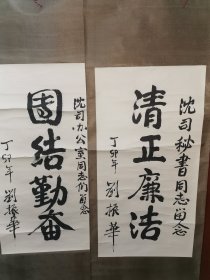 沈司秘书同志留念
清正廉洁
丁卯年 刘振华
沈司办公室同志们留念
团结勤奋
丁卯年 刘振华